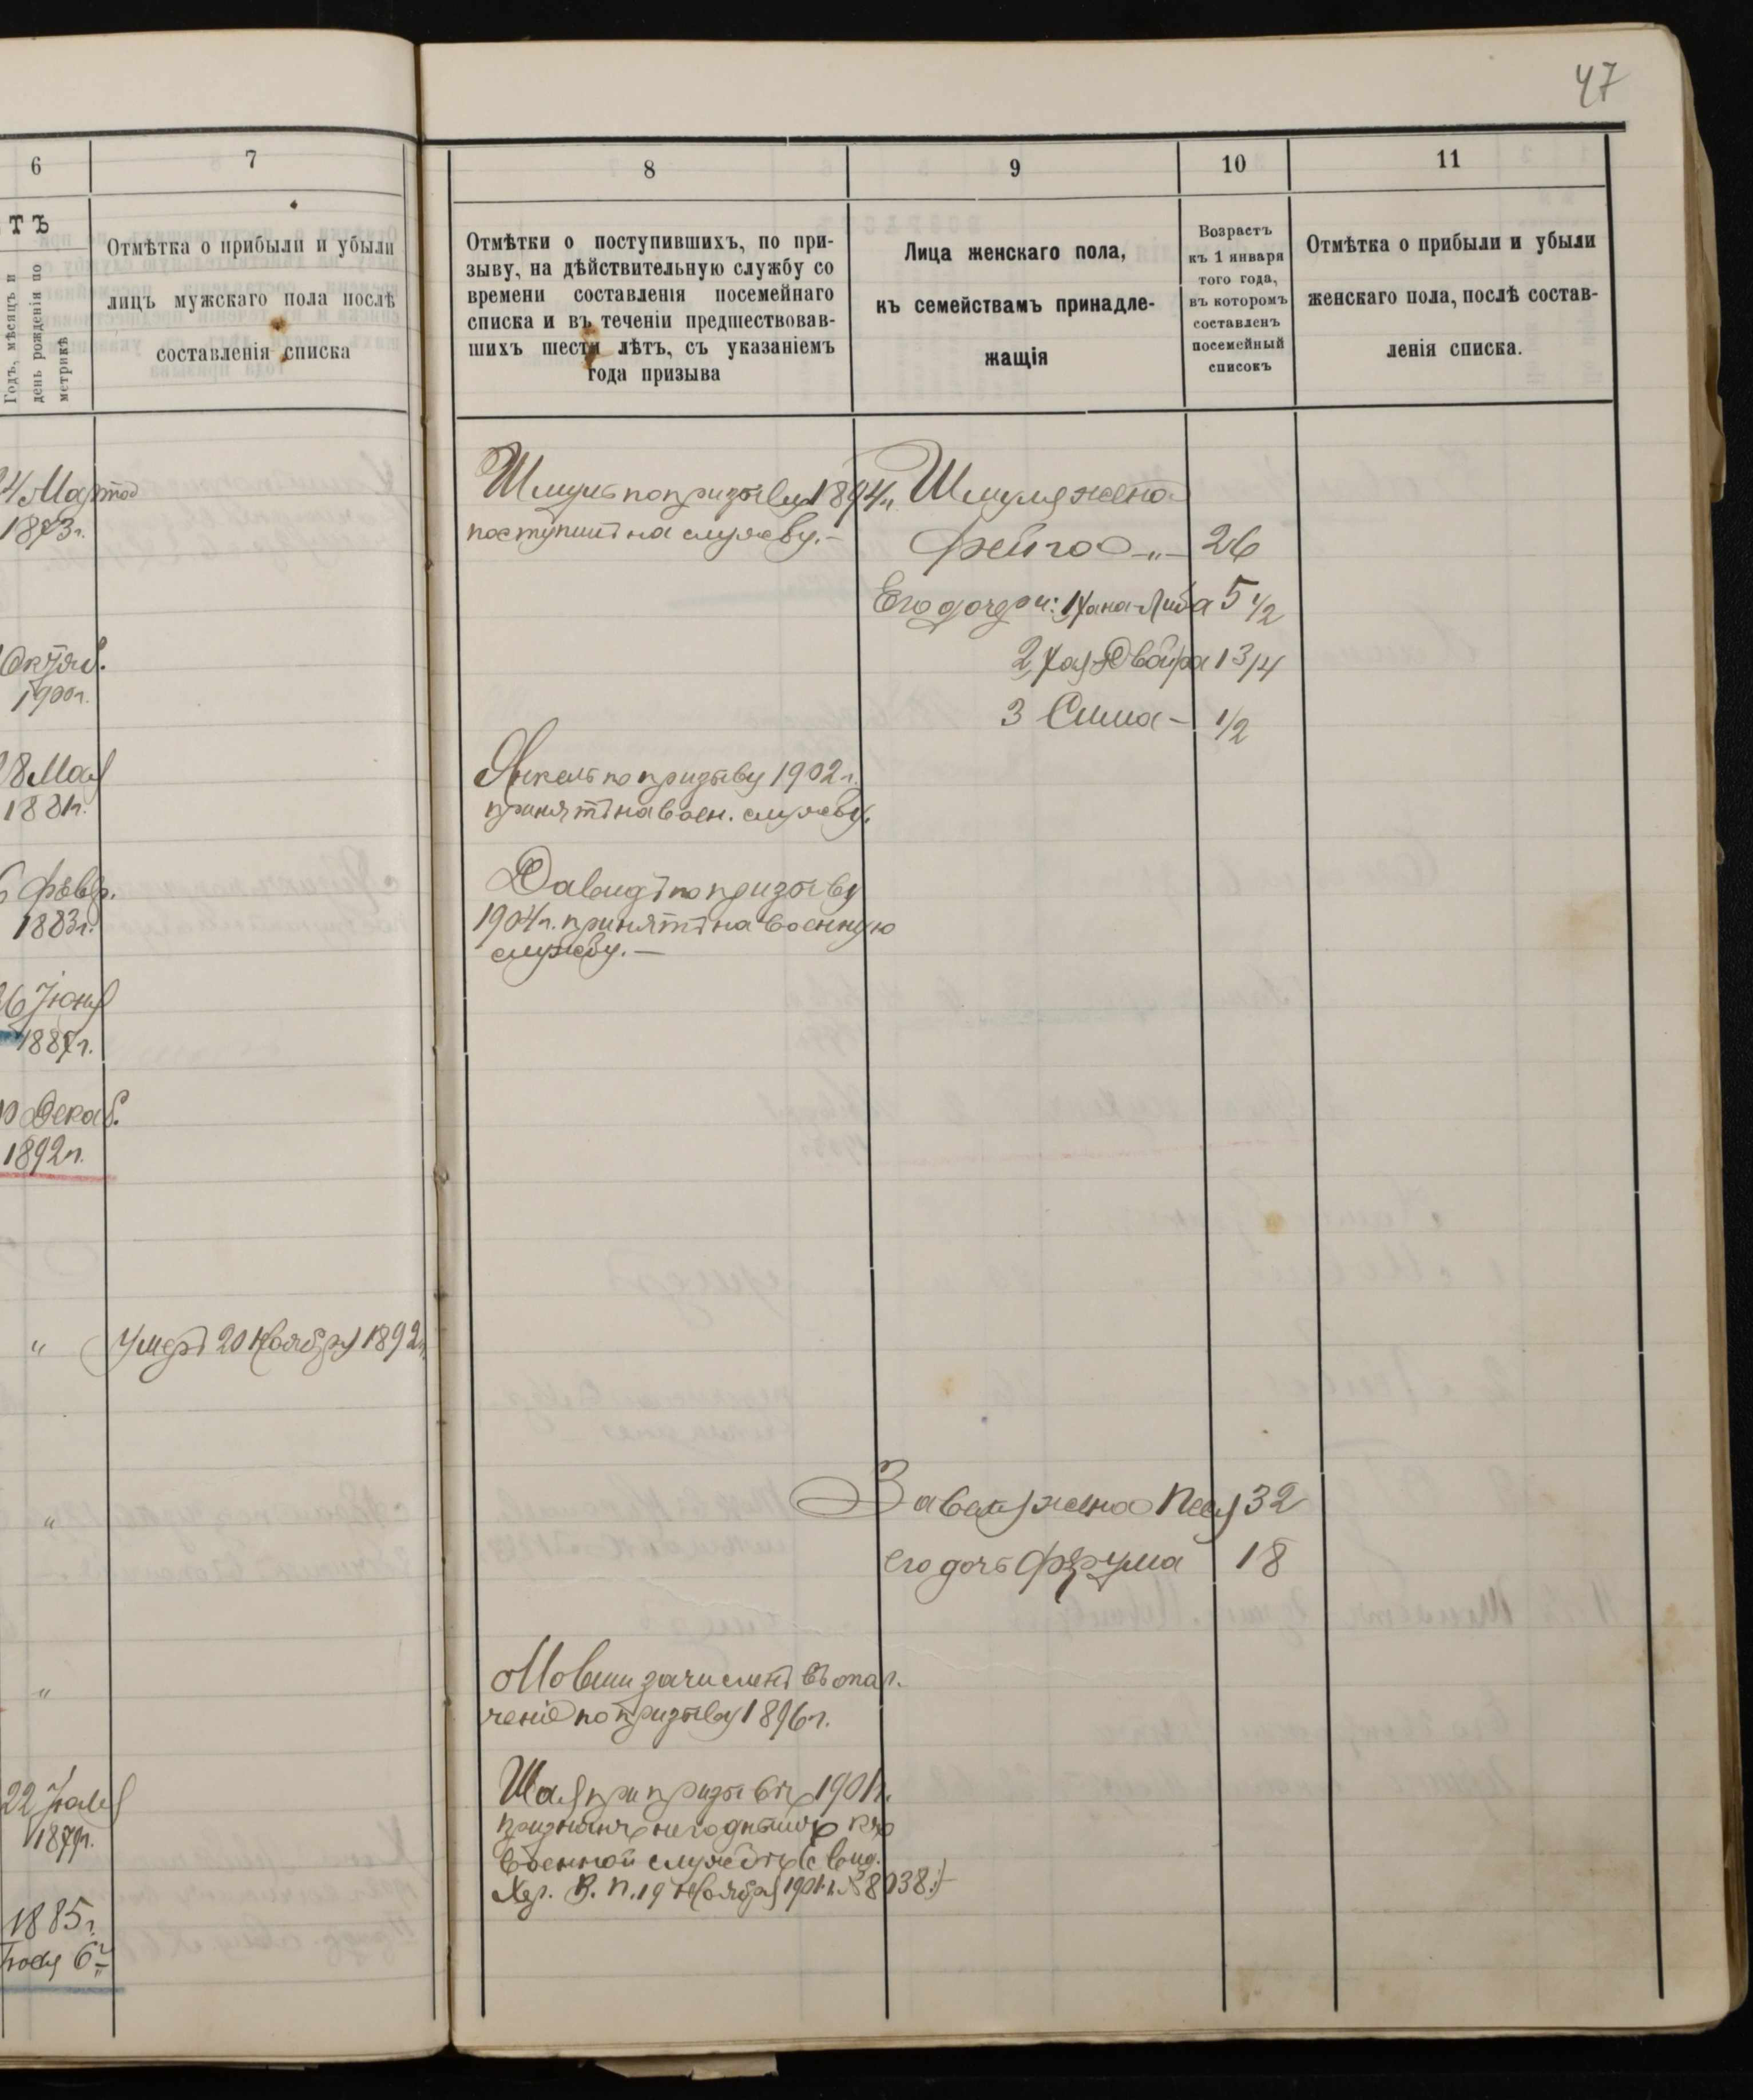 47
6
7
8
9
10
11
ТЪ
Годъ, мѣсяцъ и
день рожденія по
метрикѣ
Отмѣтка о прибыли и убыли
лицъ мужскаго пола послѣ
составленія списка
Отмѣтки о поступившихъ, по при-
зыву, на дѣйствительную службу со
времени составленія посемейнаго
списка и въ теченіи предшествовав-
шихъ шести лѣтъ, съ указаніемъ
года призыва
Лица женскаго пола,
къ семействамъ принадле-
жащія
Возрастъ
къ 1 января
того года,
въ которомъ
составленъ
посемейный
списокъ
Отмѣтка о прибыли и убыли
женскаго пола, послѣ состав-
ленія списка.
4 Марта
1873г.
Октяб.
1900г.
8 Мая
1881г.
6 Февр.
1883г.
26 Іюня
1887г.
Декаб.
1892г.
" Умеръ 20 Ноября 1892г.
"
"
22 Іюля
1879г.
1885г.
6
Шмуль по призыву 1894г.
поступилъ на службу.-
Янкель по призыву 1902г.
принятъ на воен. службу.
Давидъ по призыву
1904г. принятъ на военную
службу.-
Мовши зачисленъ въ опол-
ченіе по призыву 1896г.
Шая при призывѣ 1901г.
признанъ негоднымъ къ
военной службѣ (свид.
Хер. В. П. 19 Ноября 1901г. № 8038.)-
Шмуля жена
Фейга -"- 26
Его дочери: 1 Хана-Либа 5 1/2
2, Хая-Двойра 1 3/4
3 Сима - 1/2
жена Песя 32
его дочь Фрума 18